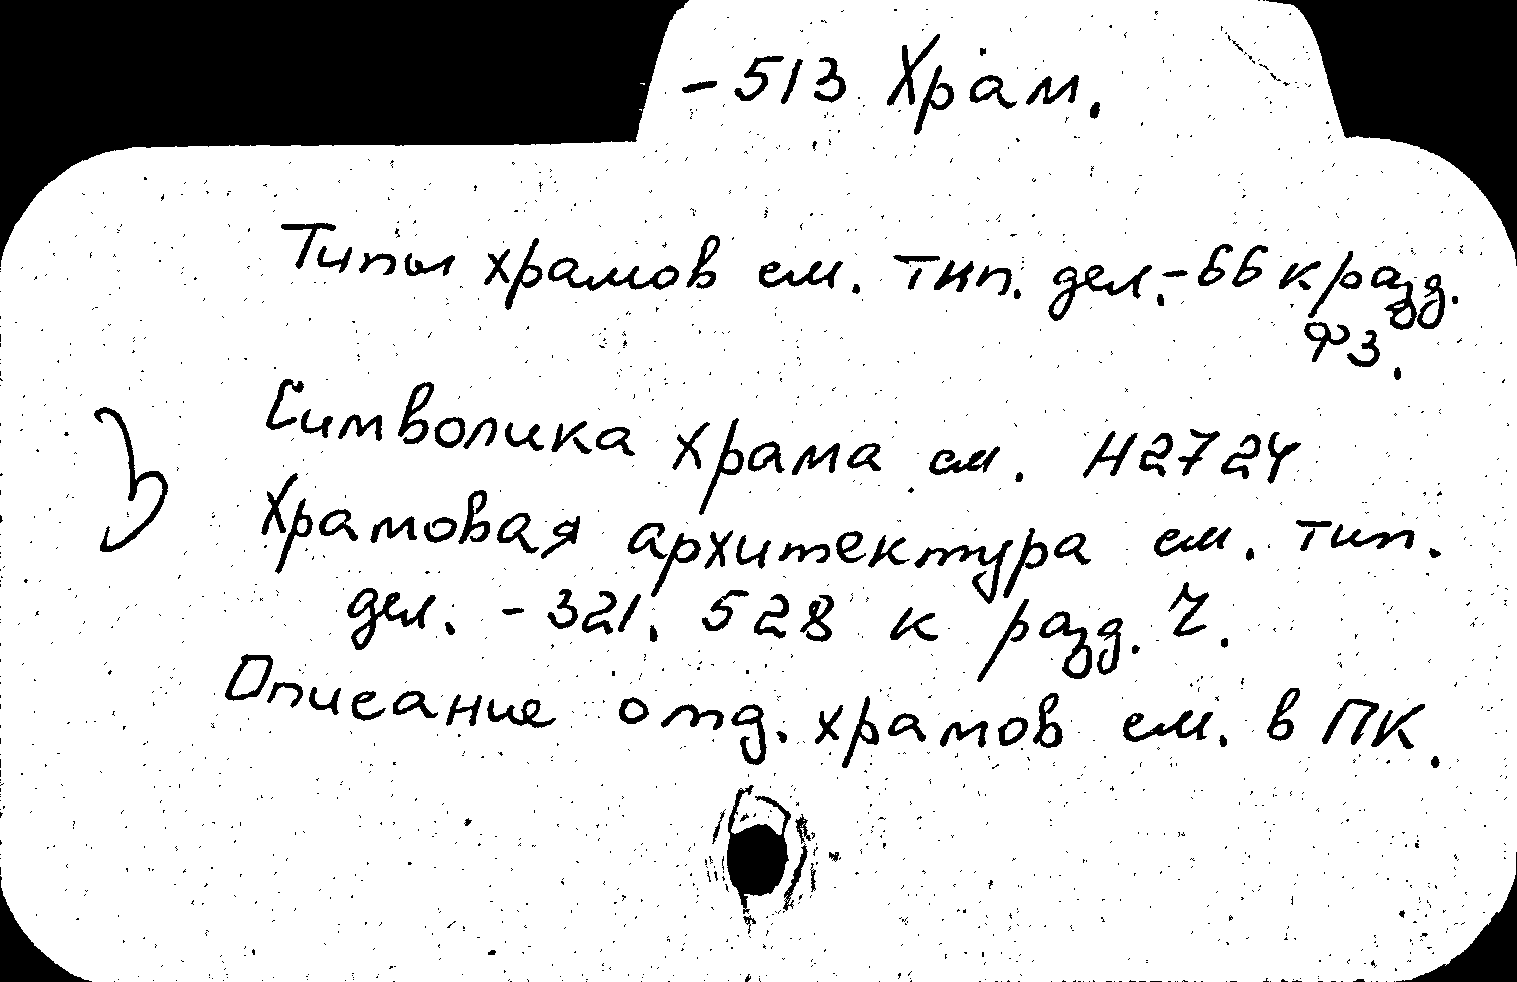 -513 Храм.
Типы храмов см. тип. дел.-66 к разд.
Ф3.
Символика храма см. Н2724
Храмовая архитектура см. тип.
дел. -321, 528 к разд. Ч.
Описание отд. храмов см. в ПК.